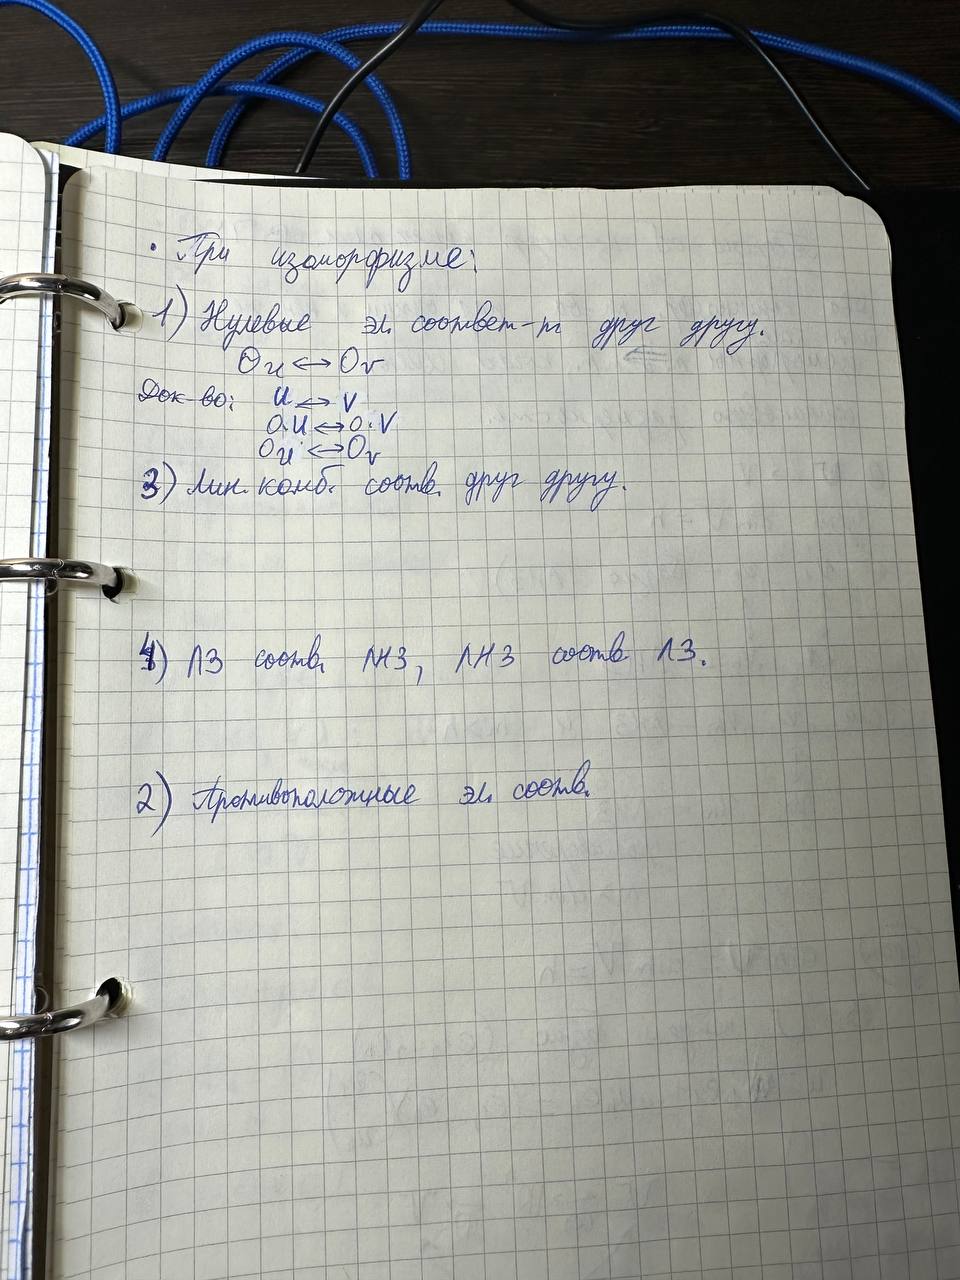 · При изоморфизме:
1) Нулевые эл. соответ-т друг другу.
Ou ↔ Ov
Док-во: u ↔ v
0·u ↔ 0·v
Ou ↔ Ov
3) Лин. комб. соотв. друг другу.
4) ЛЗ соотв. ЛНЗ, ЛНЗ соотв ЛЗ.
2) Противоположные эл. соотв.